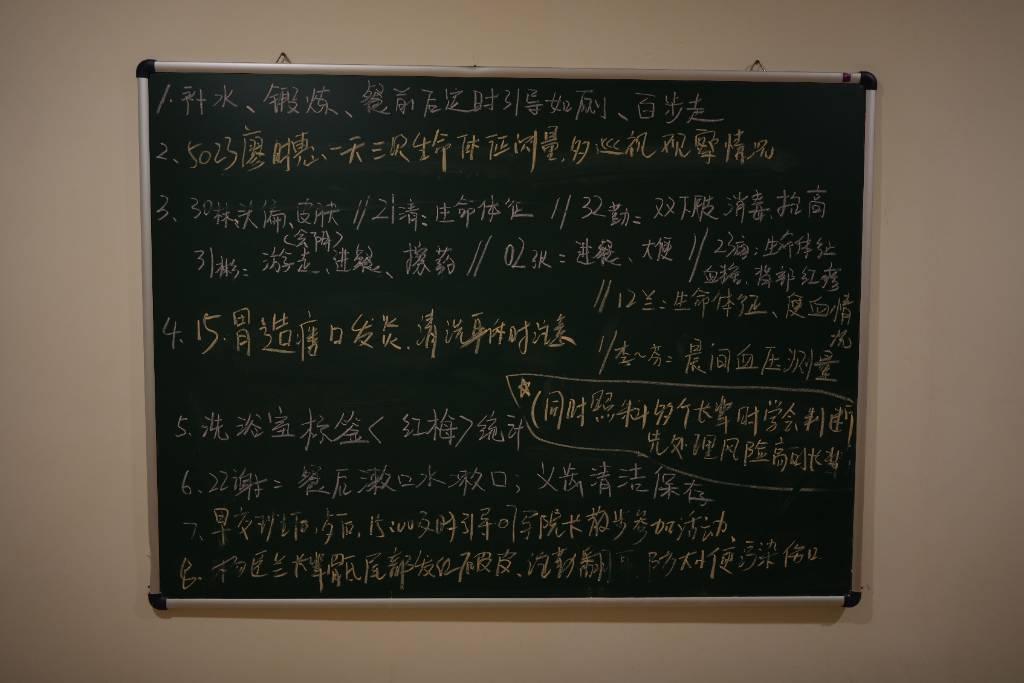 1. 补水、锻炼、餐前后定时引导如厕、百步走
2、5023廖 一天三次生命体征测量,多巡视观察情况
3、30林:头偏、皮肤 // 21清:生命体征 // 32勤:双下肢消毒、抬高
(会阴)
31彬:游走、进餐、擦药 // 02张:进餐、大便 // 23病:生命体征
血糖、背部红疹
// 12兰:生命体征、度血情
况
4、15.胃造瘘口发炎,清洗 时注意
// 李〜芬:晨间血压测量
☆(同时照料多个长辈时学会判断
先处理风险高的长辈
5、洗浴室标签<红梅>统计
6、22谢:餐后漱口水漱口;义齿清洁保存
7、早交班 后,15:00 时引导 院长 散步参加活动
8、 兰长辈骶尾部发红破皮、注 勤翻 ,防大小便污染伤口